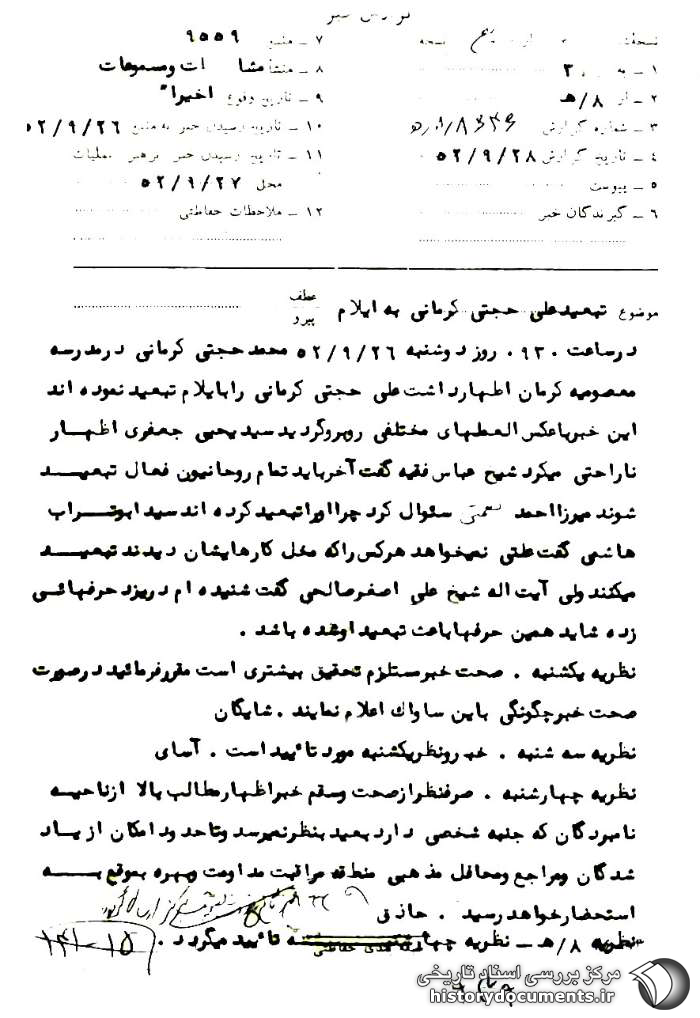 گزارش خبر
نسخه از نسخه
۱ ـ به ۳
۲ ـ از ۸/هـ
۳ ـ شماره گزارش
۴ ـ تاریخ گزارش ۵۲/۹/۲۸
۵ ـ پیوست
۶ ـ گیرندگان خبر
۷ ـ منبع ۹۵۵۹
۸ ـ منشأ ات ومسموعات
۹ ـ تاریخ وقوع اخیرا"
۱۰ ـ تاریخ رسیدن خبر به منبع ۵۲/۹/۲۶
۱۱ ـ تاریخ رسیدن خبر برهبر عملیات
محل ۵۲/۹/۲۷
۱۲ ـ ملاحظات حفاظتی
موضوع تبعیدعلی حجتی کرمانی به ایلام
عطف
پیرو
درساعت ۰۹۳۰ روز دوشنبه ۵۲/۹/۲۶ محمدحجتی کرمانی درمدرسه
معصومیه کرمان اظهارداشت علی حجتی کرمانی رابایلام تبعیدنموده اند
این خبرباعکس العملهای مختلفی روبروگردیدسیدیحیی جعفری اظهار
ناراحتی میکردشیخ عباس فقیه گفت آخربایدتمام روحانیون فعال تبعیـد
شوندمیرزااحمد سئوال کردچرااوراتبعیدکرده اندسیدابوتـراب
هاشمی گفت علتی نمیخواهدهرکس راکه مخل کارهایشان دیدندتبعیـد
میکنندولی آیت اله شیخ علی اصغرصالحی گفت شنیده ام دریزدحرفهائـی
زده شایدهمین حرفهاباعث تبعیداوشده باشد .
نظریه یکشنبه . صحت خبرمستلزم تحقیق بیشتری است مقررفرمائیددرصورت
صحت خبرچگونگی باین ساواك اعلام نمایند . شایگان
نظریه سه شنبه . خبرونظریکشنبه موردتائیداست . آسای
نظریه چهارشنبه . صرفنظرازصحت وسقم خبراظهارمطالب بالا ازناحیـه
نامبردگان که جنبه شخصی داردبعیدبنظرنمیرسدوتاحدودامکان ازیـاد
شدگان ومراجع ومحافل مذهبی منطقه مراقبت مداومت وبهره بموقع بـه
استحضارخواهدرسید . حاذق
نظریه ۸/هـ ـ نظریه تائیدمیگردد .
۱۴۱-۱۵
مرکز بررسی اسناد تاریخی
historydocuments.ir